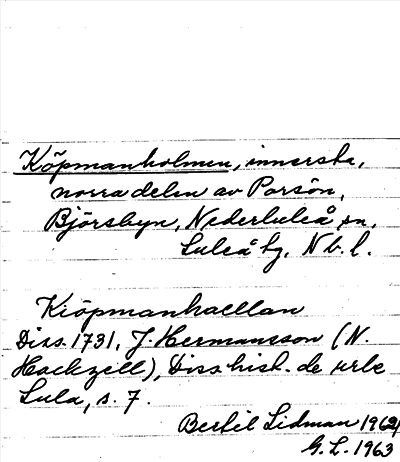 Köpmanholmen, innersta,
norra delen av Porsön,
Björsbyn, Nederluleå sn,
Luleå tg, Nb. l.
Kiöpmanhaellan
Diss. 1731, J. Hermansson (N.
Hackzell), Diss. hist. de urbe
Lula, s. 7.
Bertil Lidman 1962
G. L. 1963